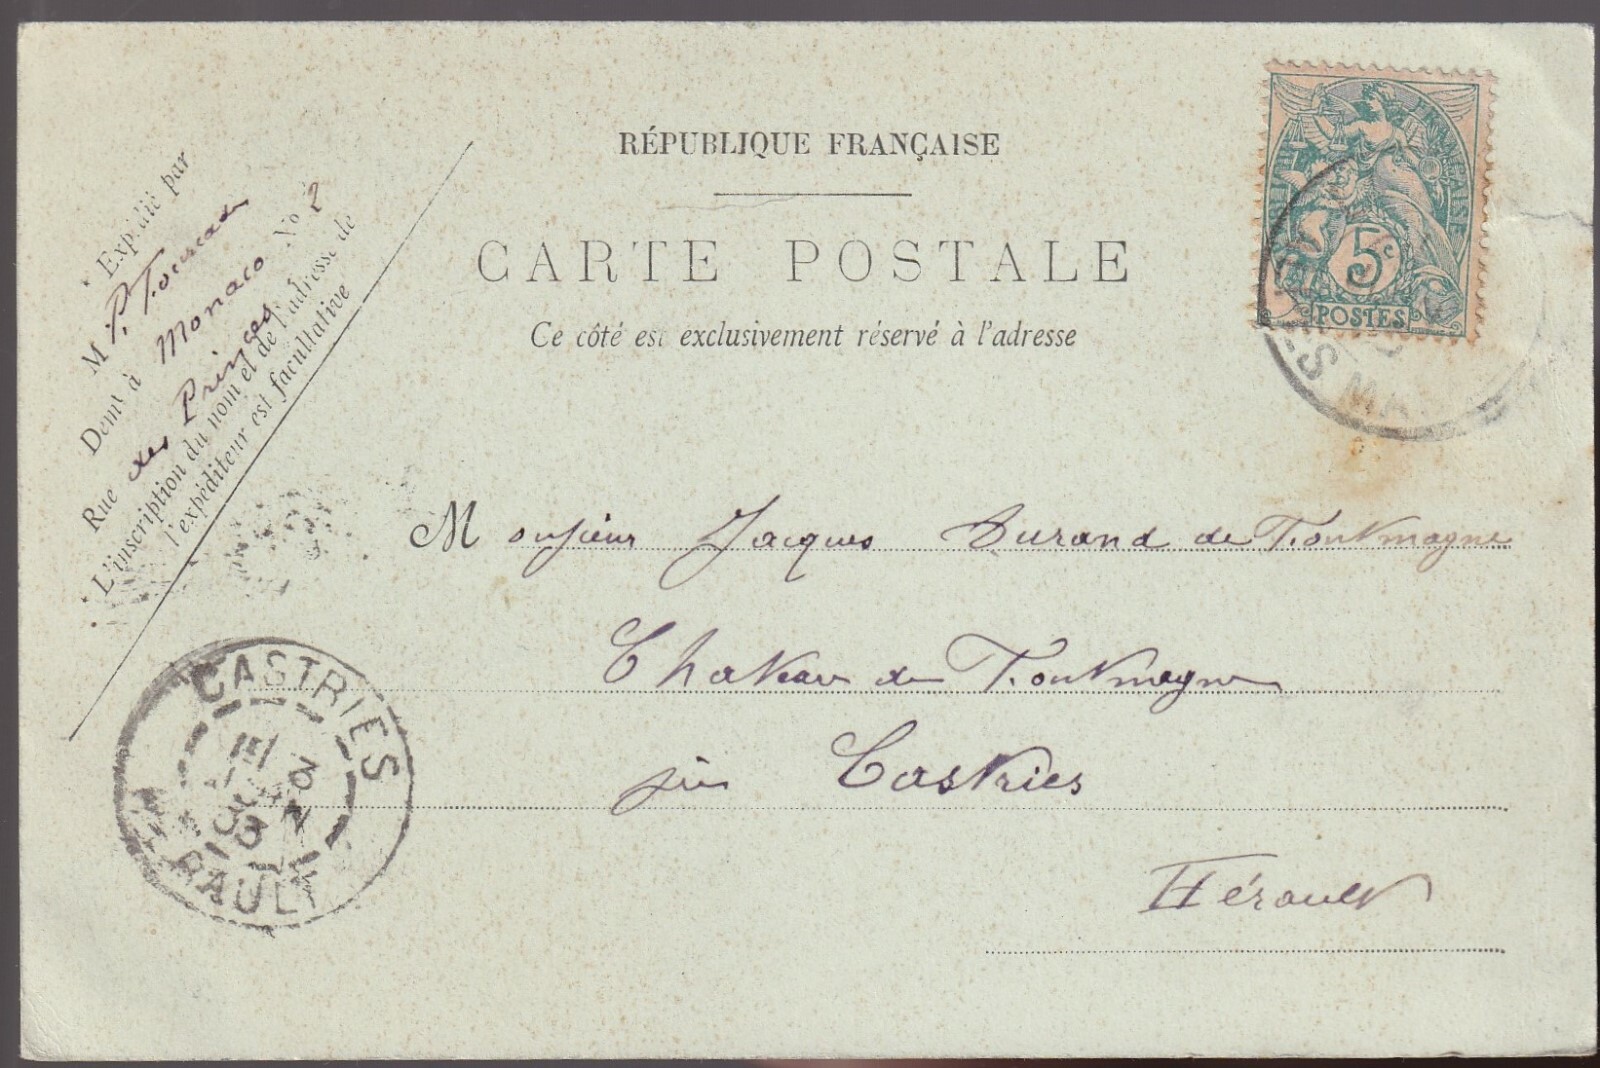 RÉPUBLIQUE FRANÇAISE
CARTE POSTALE
Ce côté est exclusivement réservé à l'adresse
Expédié par
M P. Tourcade
Demt à Monaco
Rue des Princes No 2
L'inscription du nom et de l'adresse de
l'expéditeur est facultative
5c
POSTES
ES MA
Monsieur Jacques Durand de Fontmagne
Chateau de Fontmagne
près Castries
Hérault
CASTRIES
HÉRAULT